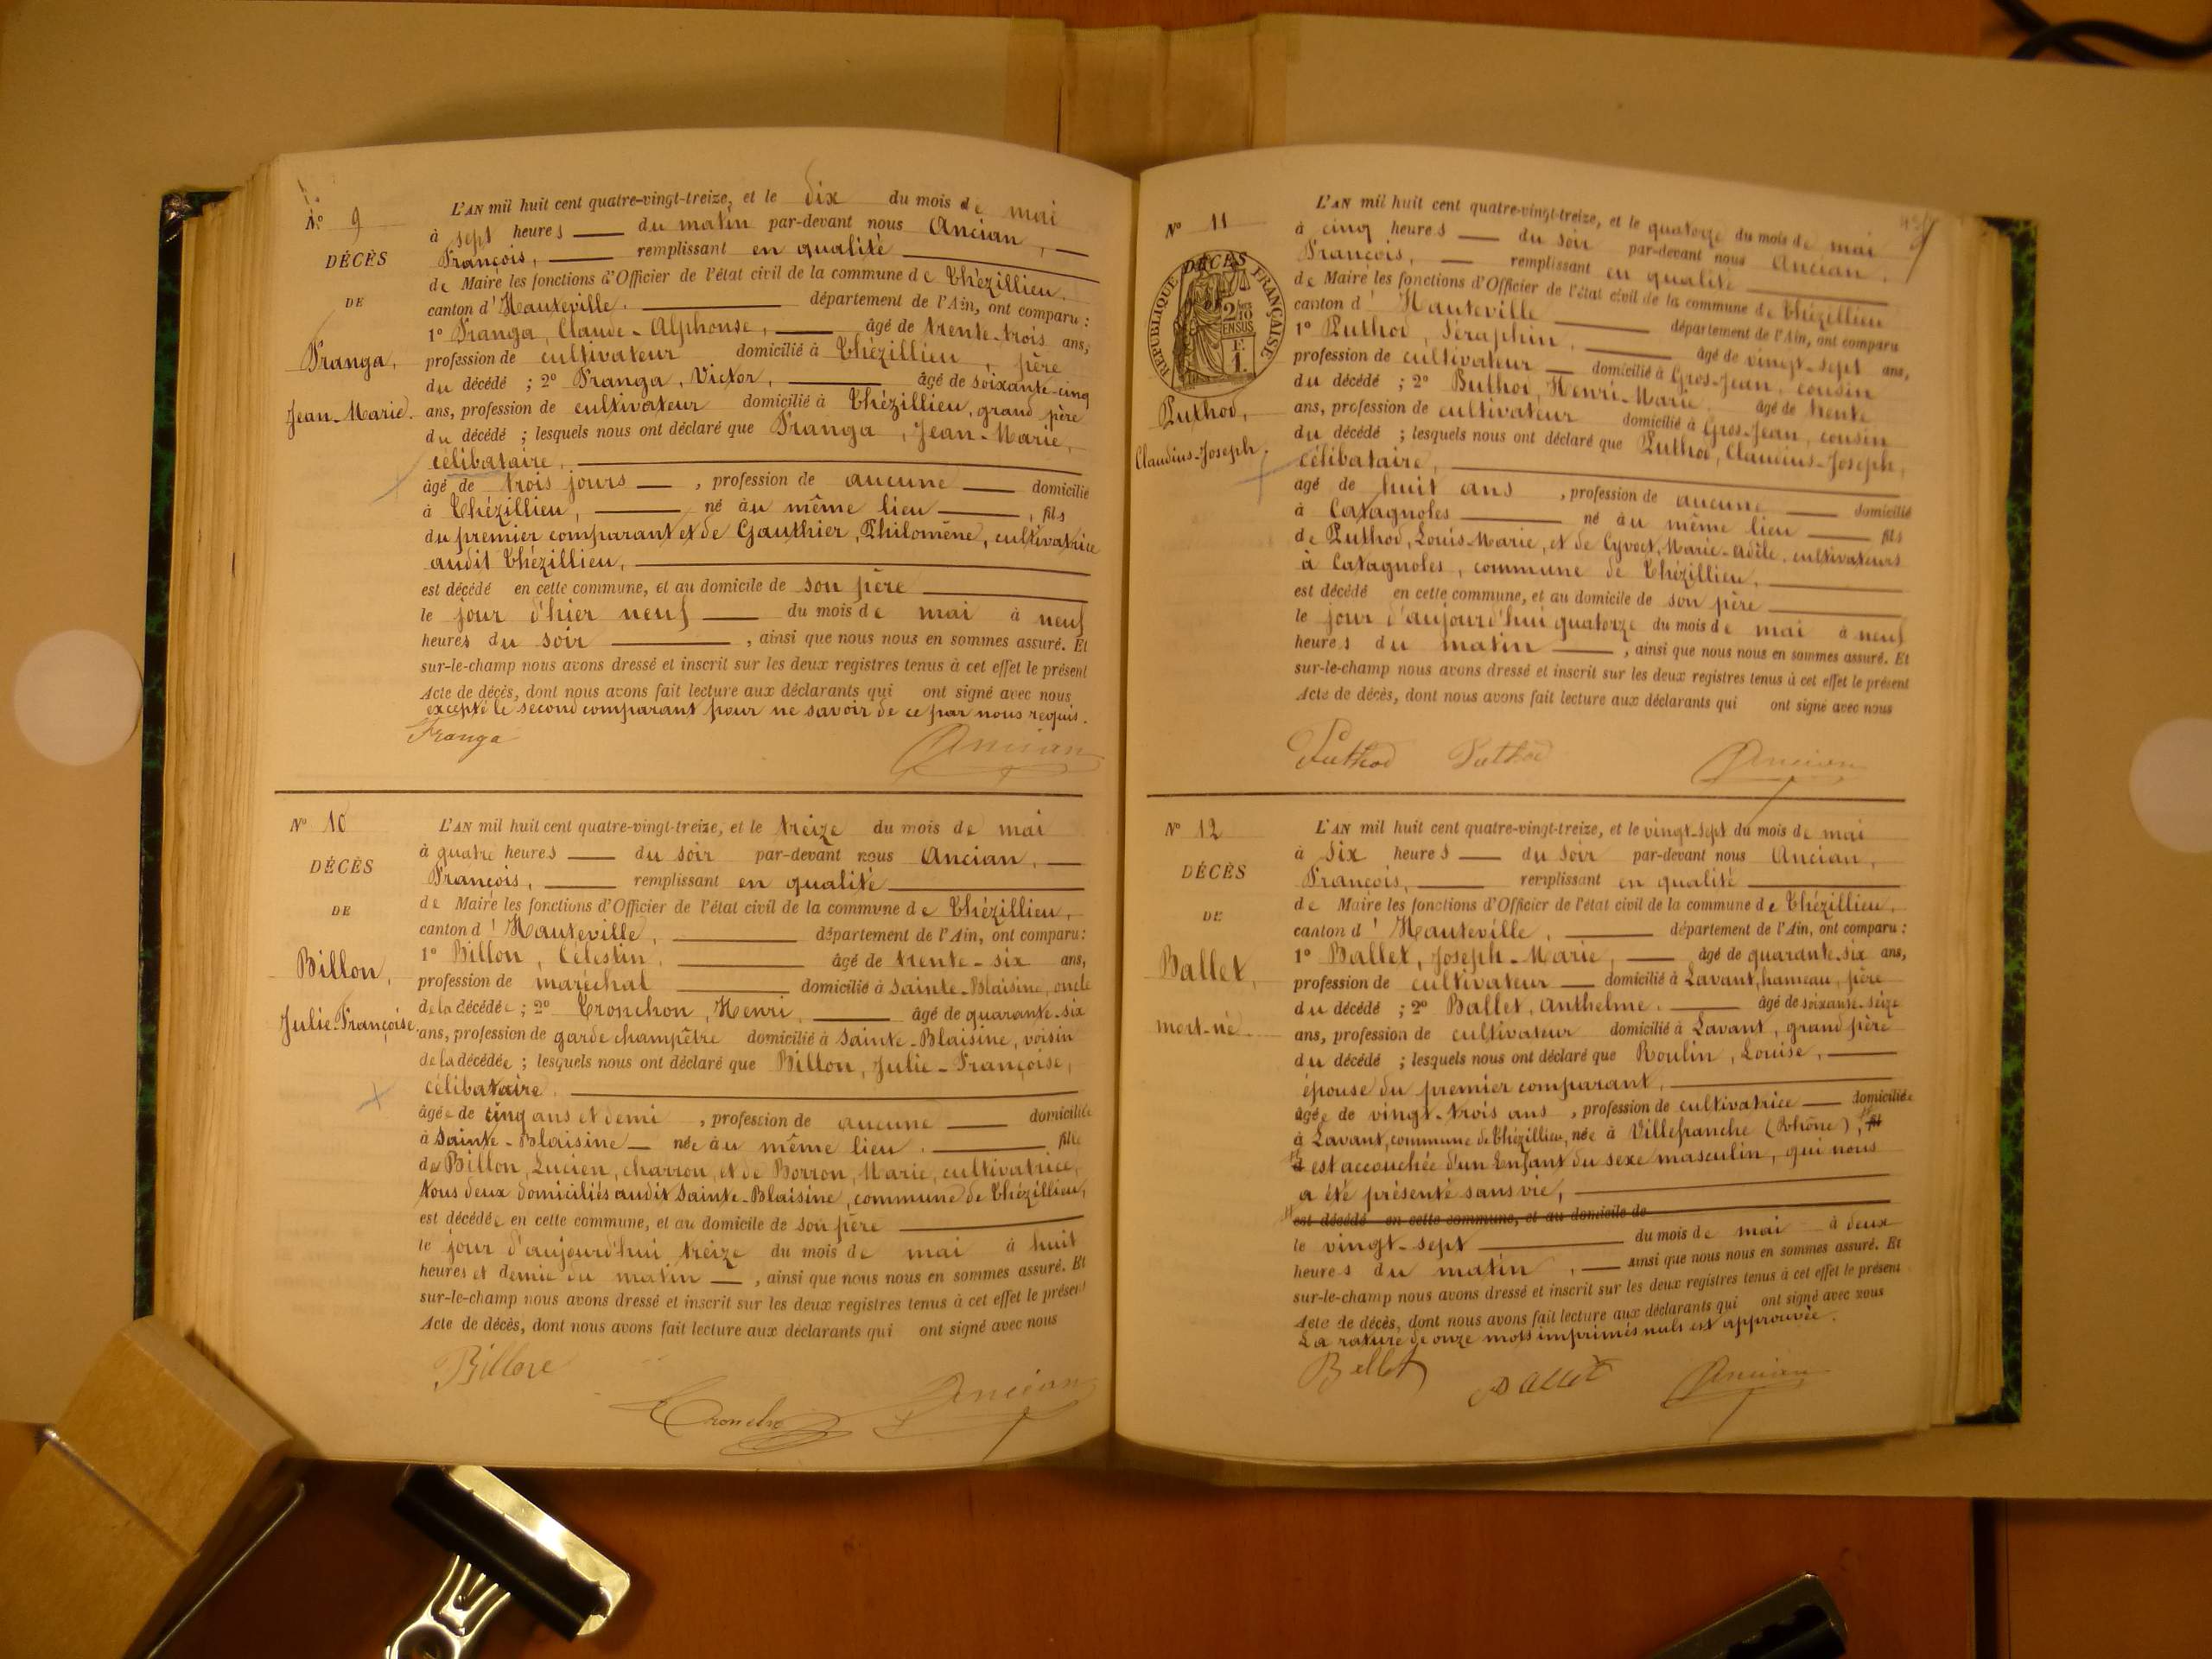 N° 9
DÉCÈS
DE
Franga,
Jean-Marie.
L'AN mil huit cent quatre-vingt-treize, et le dix du mois de mai
à sept heures du matin par-devant nous Ancian,
François, remplissant en qualité
de Maire les fonctions d'Officier de l'état civil de la commune de Thézillieu.
canton d' Hauteville. département de l'Ain, ont comparu :
1° Franga, Claude-Alphonse, âgé de trente-trois ans,
profession de cultivateur domicilié à Thézillieu, père
du décédé ; 2° Franga, Victor, âgé de soixante-cinq
ans, profession de cultivateur domicilié à Thézillieu, grand père
du décédé ; lesquels nous ont déclaré que Franga, Jean-Marie,
célibataire,
âgé de trois jours , profession de aucune domicilié
à Thézillieu, né àu même lieu , fils
du premier comparant et de Gauthier, Philomène, cultivatrice
audit Thézillieu,
est décédé en cette commune, et au domicile de son père
le jour d'hier neuf du mois de mai à neuf
heures du soir , ainsi que nous nous en sommes assuré. Et
sur-le-champ nous avons dressé et inscrit sur les deux registres tenus à cet effet le présent
Acte de décès, dont nous avons fait lecture aux déclarants qui ont signé avec nous
excepté le second comparant pour ne savoir de ce par nous requis.
Franga Ancian
N° 10
DÉCÈS
DE
Billon,
Julie-Françoise.
L'AN mil huit cent quatre-vingt-treize, et le treize du mois de mai
à quatre heures du soir par-devant nous Ancian,
François, remplissant en qualité
de Maire les fonctions d'Officier de l'état civil de la commune de Thézillieu,
canton d' Hauteville, département de l'Ain, ont comparu :
1° Billon, Célestin. âgé de trente-six ans,
profession de maréchal domicilié à Sainte-Blaisine, oncle
de la décédée ; 2° Tronchon, Henri, âgé de quarante-six
ans, profession de garde champêtre domicilié à Sainte-Blaisine, voisin
de la décédée ; lesquels nous ont déclaré que Billon, Julie-Françoise,
célibataire.
âgée de cinq ans et demi , profession de aucune domiciliée
à Sainte-Blaisine née àu même lieu. fille
de Billon, Lucien, charron, et de Borron, Marie, cultivatrice,
tous deux domiciliés audit Sainte-Blaisine, commune de Thézillieu,
est décédée en cette commune, et au domicile de son père
le jour d'aujourd'hui treize du mois de mai à huit
heures et demie du matin , ainsi que nous nous en sommes assuré. Et
sur-le-champ nous avons dressé et inscrit sur les deux registres tenus à cet effet le présent
Acte de décès, dont nous avons fait lecture aux déclarants qui ont signé avec nous
Billon
Ancian
N° 11
RÉPUBLIQUE FRANÇAISE
DÉCÈS
2/10
EN SUS
F.
1.
Puthod,
Claudius-Joseph.
L'AN mil huit cent quatre-vingt-treize, et le quatorze du mois de mai
à cinq heures du soir par-devant nous Ancian,
François, remplissant en qualité
de Maire les fonctions d'Officier de l'état civil de la commune de Thézillieu
canton d' Hauteville département de l'Ain, ont comparu
1° Puthod, Séraphin, âgé de vingt-sept ans,
profession de cultivateur domicilié à Gros-Jean, cousin
du décédé ; 2° Puthod, Henri-Marie, âgé de trente
ans, profession de cultivateur domicilié à Gros-Jean, cousin
du décédé ; lesquels nous ont déclaré que Puthod, Claudius-Joseph,
célibataire,
âgé de huit ans , profession de aucune domicilié
à Catagnoles né àu même lieu fils
de Puthod, Louis-Marie, et de Cyvoct, Marie-Adèle, cultivateurs
à Catagnoles, commune de Thézillieu,
est décédé en cette commune, et au domicile de son père
le jour d'aujourd'hui quatorze du mois de mai à neuf
heures du matin , ainsi que nous nous en sommes assuré. Et
sur-le-champ nous avons dressé et inscrit sur les deux registres tenus à cet effet le présent
Acte de décès, dont nous avons fait lecture aux déclarants qui ont signé avec nous
Puthod Puthod Ancian
N° 12
DÉCÈS
DE
Ballet,
mort-né
L'AN mil huit cent quatre-vingt-treize, et le vingt-sept du mois de mai
à six heures du soir par-devant nous Ancian,
François, remplissant en qualité
de Maire les fonctions d'Officier de l'état civil de la commune de Thézillieu,
canton d' Hauteville, département de l'Ain, ont comparu :
1° Ballet, Joseph-Marie, âgé de quarante-six ans,
profession de cultivateur domicilié à Lavant, hameau, père
du décédé ; 2° Ballet, Anthelme. âgé de soixante-seize
ans, profession de cultivateur domicilié à Lavant, grand père
du décédé ; lesquels nous ont déclaré que Roulin, Louise,
épouse du premier comparant,
âgée de vingt-trois ans , profession de cultivatrice domiciliée
à Lavant, commune de Thézillieu, née à Villefranche (Rhône), fil
d est accouchée d'un Enfant du sexe masculin, qui nous
a été présenté sans vie,
est décédé en cette commune, et au domicile de
le vingt-sept du mois de mai à deux
heures du matin , ainsi que nous nous en sommes assuré. Et
sur-le-champ nous avons dressé et inscrit sur les deux registres tenus à cet effet le présent
Acte de décès, dont nous avons fait lecture aux déclarants qui ont signé avec nous
La rature de onze mots imprimés nuls est approuvée.
Ballet Ballet Ancian